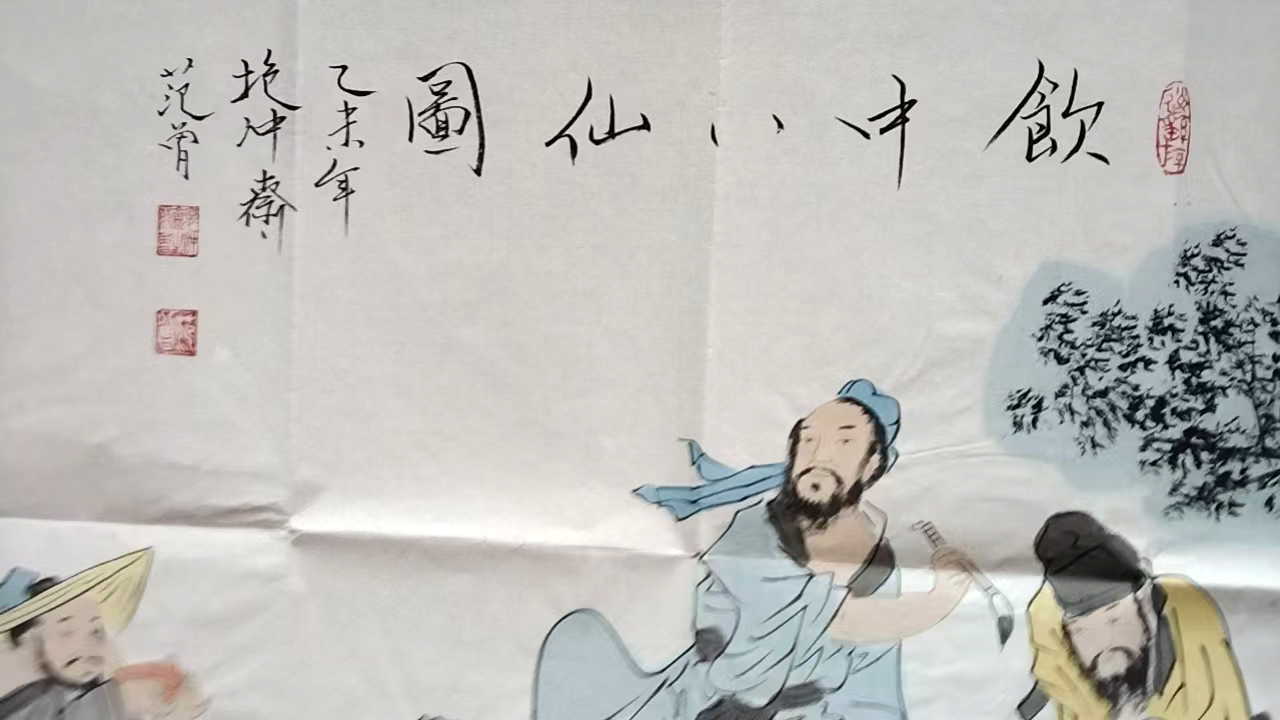 飲中八仙圖
乙未年
抱冲齋
范曾